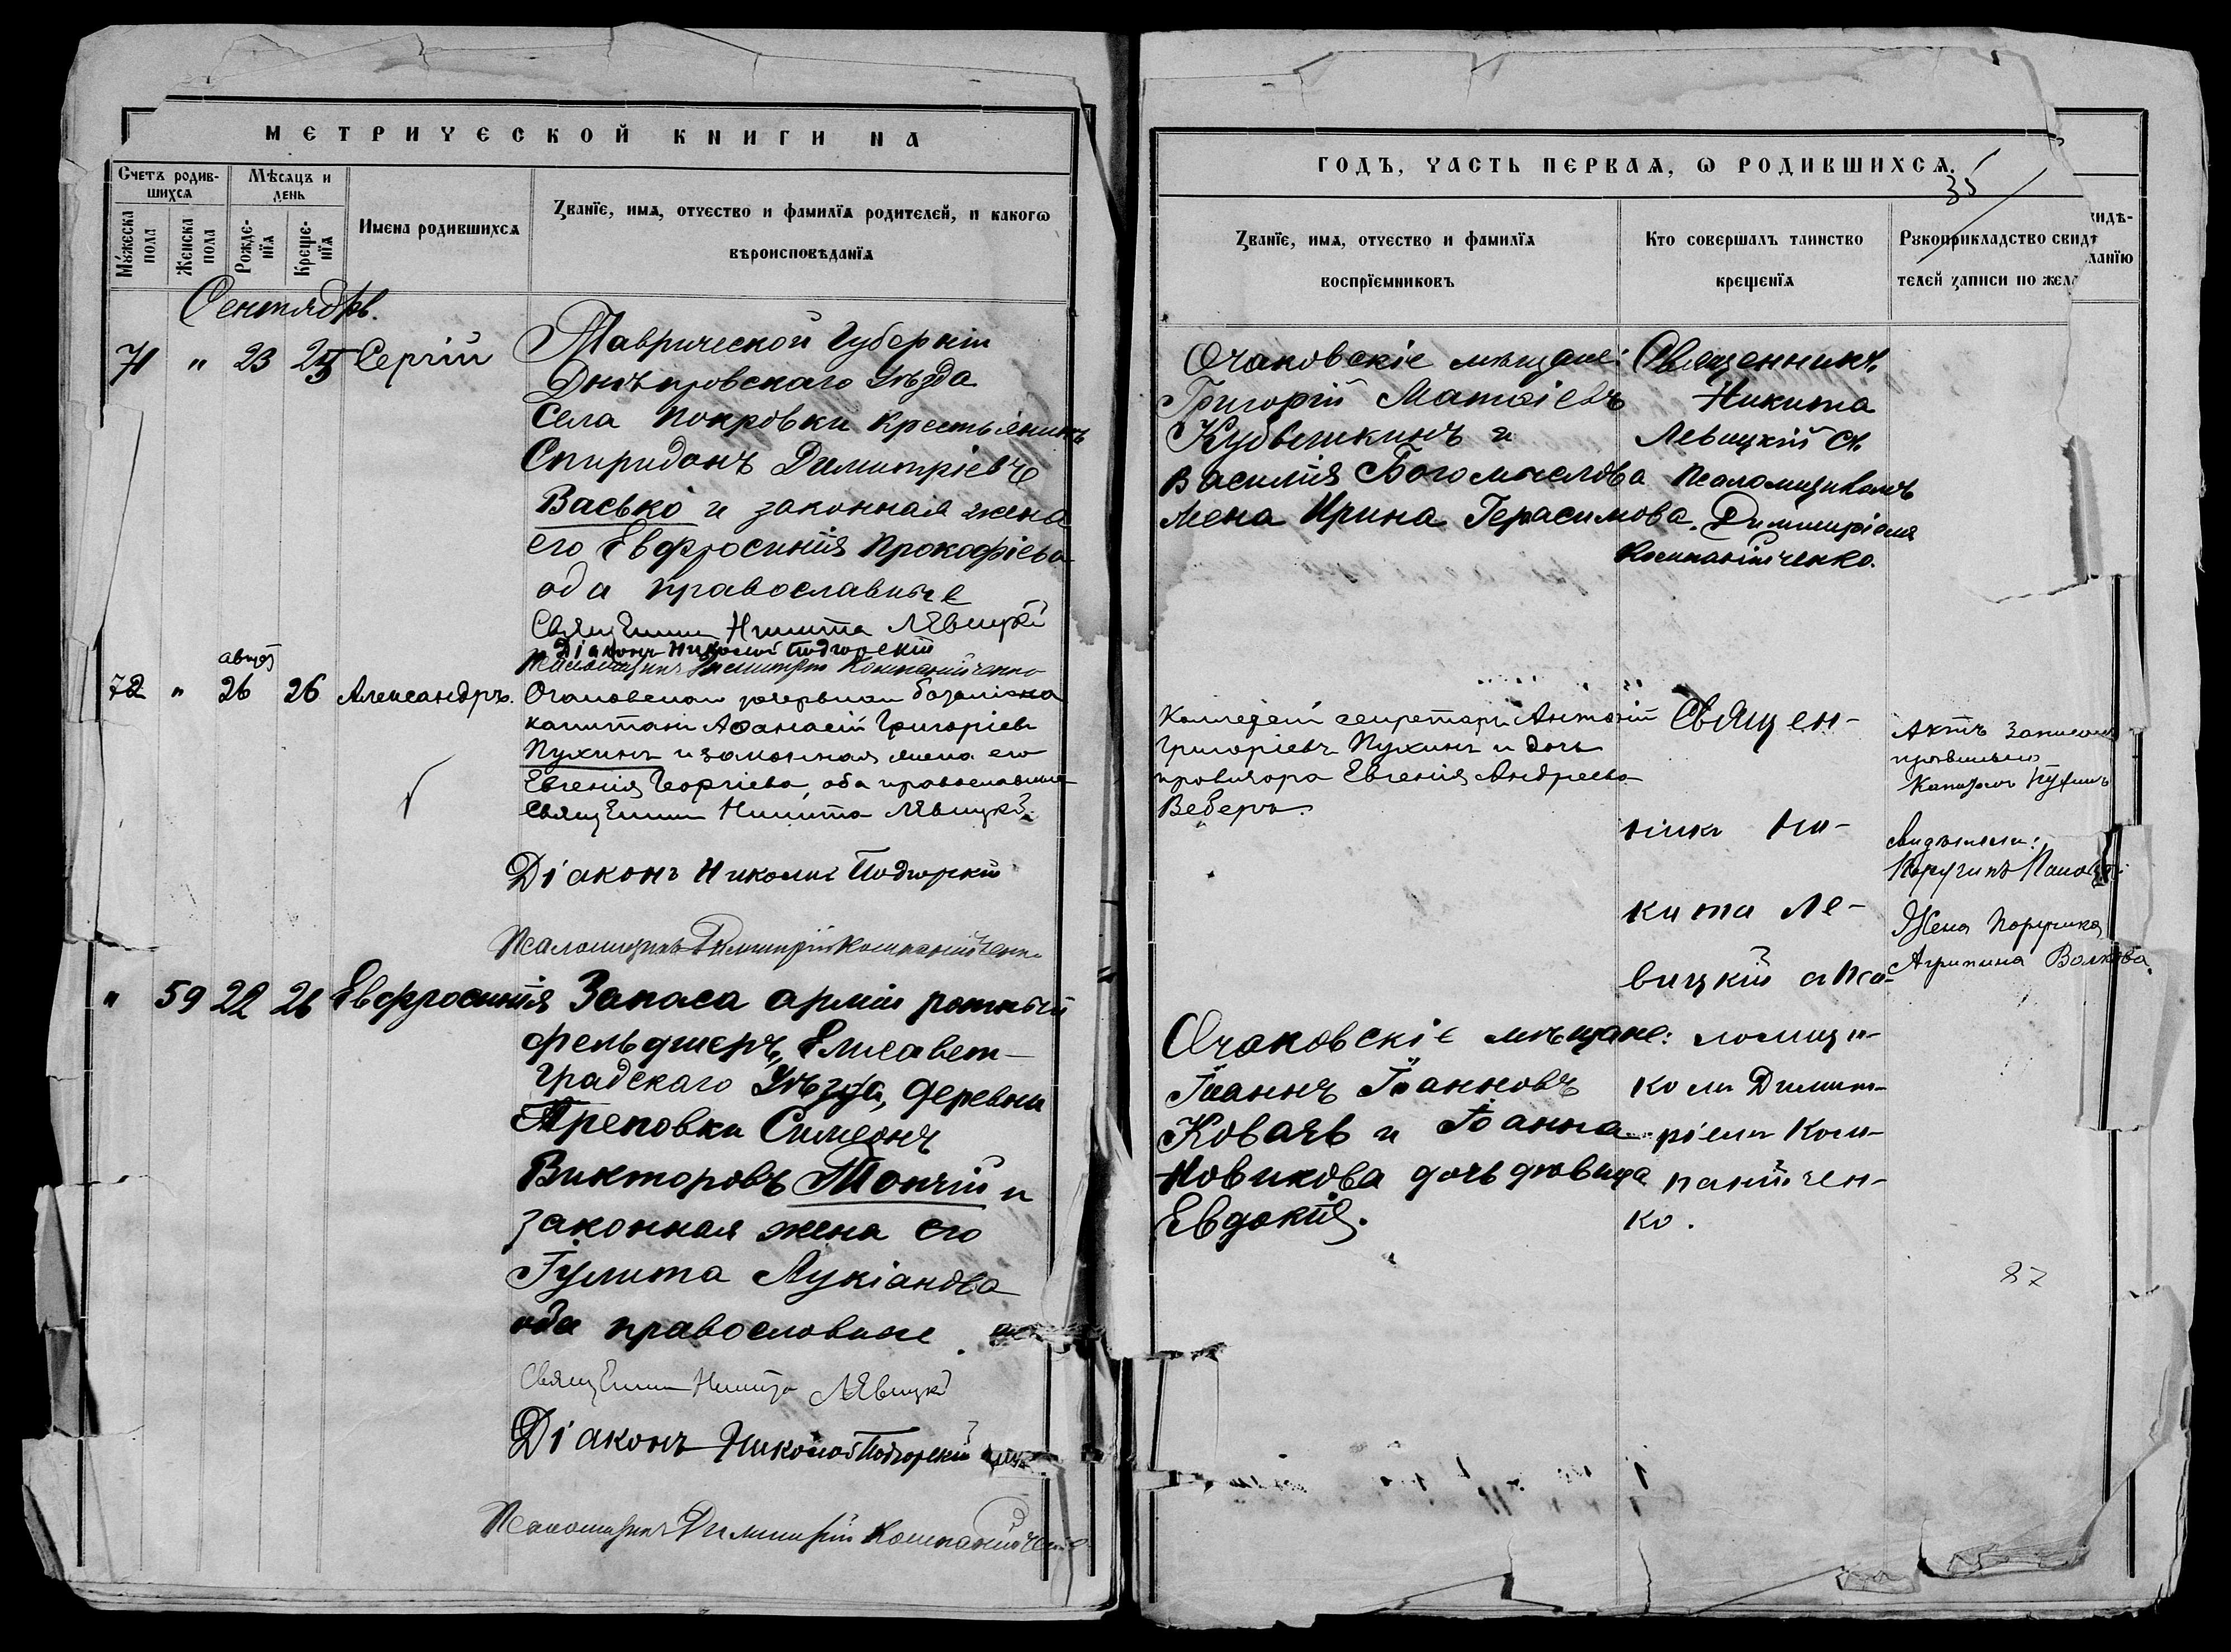 МЕТРИЧЕСКОЙ КНИГИ НА
Счетъ родив-
шихся
Мѣсяцъ и
день
Мужеска
пола
Женска
пола
Рожде-
нїя
Креще-
нїя
Имена родившихся
Званїе, имя, отчество и фамилїя родителей, и какогѡ
вѣроисповѣданїя
Сентябрь.
71 " 23 25 Сергій
Таврической Губерніи
Днѣпровскаго Уѣзда
Села Покровки крестьянинъ
Спиридонъ Димитріевъ
Васько и законная жена
его Евфросинія Прокофіева
оба православные
Священникъ Никита Левицкій
Діаконъ Николай Подгорскій
Псаломщикъ Димитрій Компанійченко
август
72 " 26 26 Александръ.
Очаковскаго резервнаго баталіона
капитанъ Аѳанасій Григоріевъ
Пухинъ и законная жена его
Евгенія Георгіева, оба православные
Священникъ Никита Левицкій
Діаконъ Николай Подгорскій
Псаломщикъ Димитрій Компанійченко
" 59 22 26 Евфросинія
Запаса арміи ротный
фельдшеръ, Елисавет-
градскаго Уѣзда, деревни
Треповки Симеонъ
Викторовъ Топчій и
законная жена его
Іулита Лукіанова
оба православные
Священникъ Никита Левицкій
Діаконъ Николай Подгорскій
Псаломщикъ Димитрій Компанійченко
ГОДЪ, ЧАСТЬ ПЕРВАЯ, Ѡ РОДИВШИХСЯ.
35
Званїе, имя, отчество и фамилїя
воспрїемниковъ
Кто совершалъ таинство
крещенїя
Рукоприкладство свидѣ-
телей записи по жел
видѣ-
ланїю
Очаковскіе мѣщане:
Григорій Матѳіевъ
Кубышкинъ и
Василія Богомолова
жена Ирина Герасимова.
Священникъ
Никита
Левицкій съ
псаломщикомъ
Димитріемъ
Компанійченко.
Коллежскій секретарь Антоній
Григоріевъ Пухинъ и дочь
провизора Евгенія Андреева
Веберъ.
Священ-
никъ Ни-
кита Ле-
вицкій с пса-
ломщи-
комъ Димит-
ріемъ Ком-
панійчен-
ко.
Актъ записанъ
правильно
Капитанъ Пухинъ
Свидѣтели:
Жена Поручика
Агрипина Волкова.
Очаковскіе мѣщане:
Іоаннъ Іоанновъ
Коваль и Іоанна
Новикова дочь дѣвица
Евдокія.
87